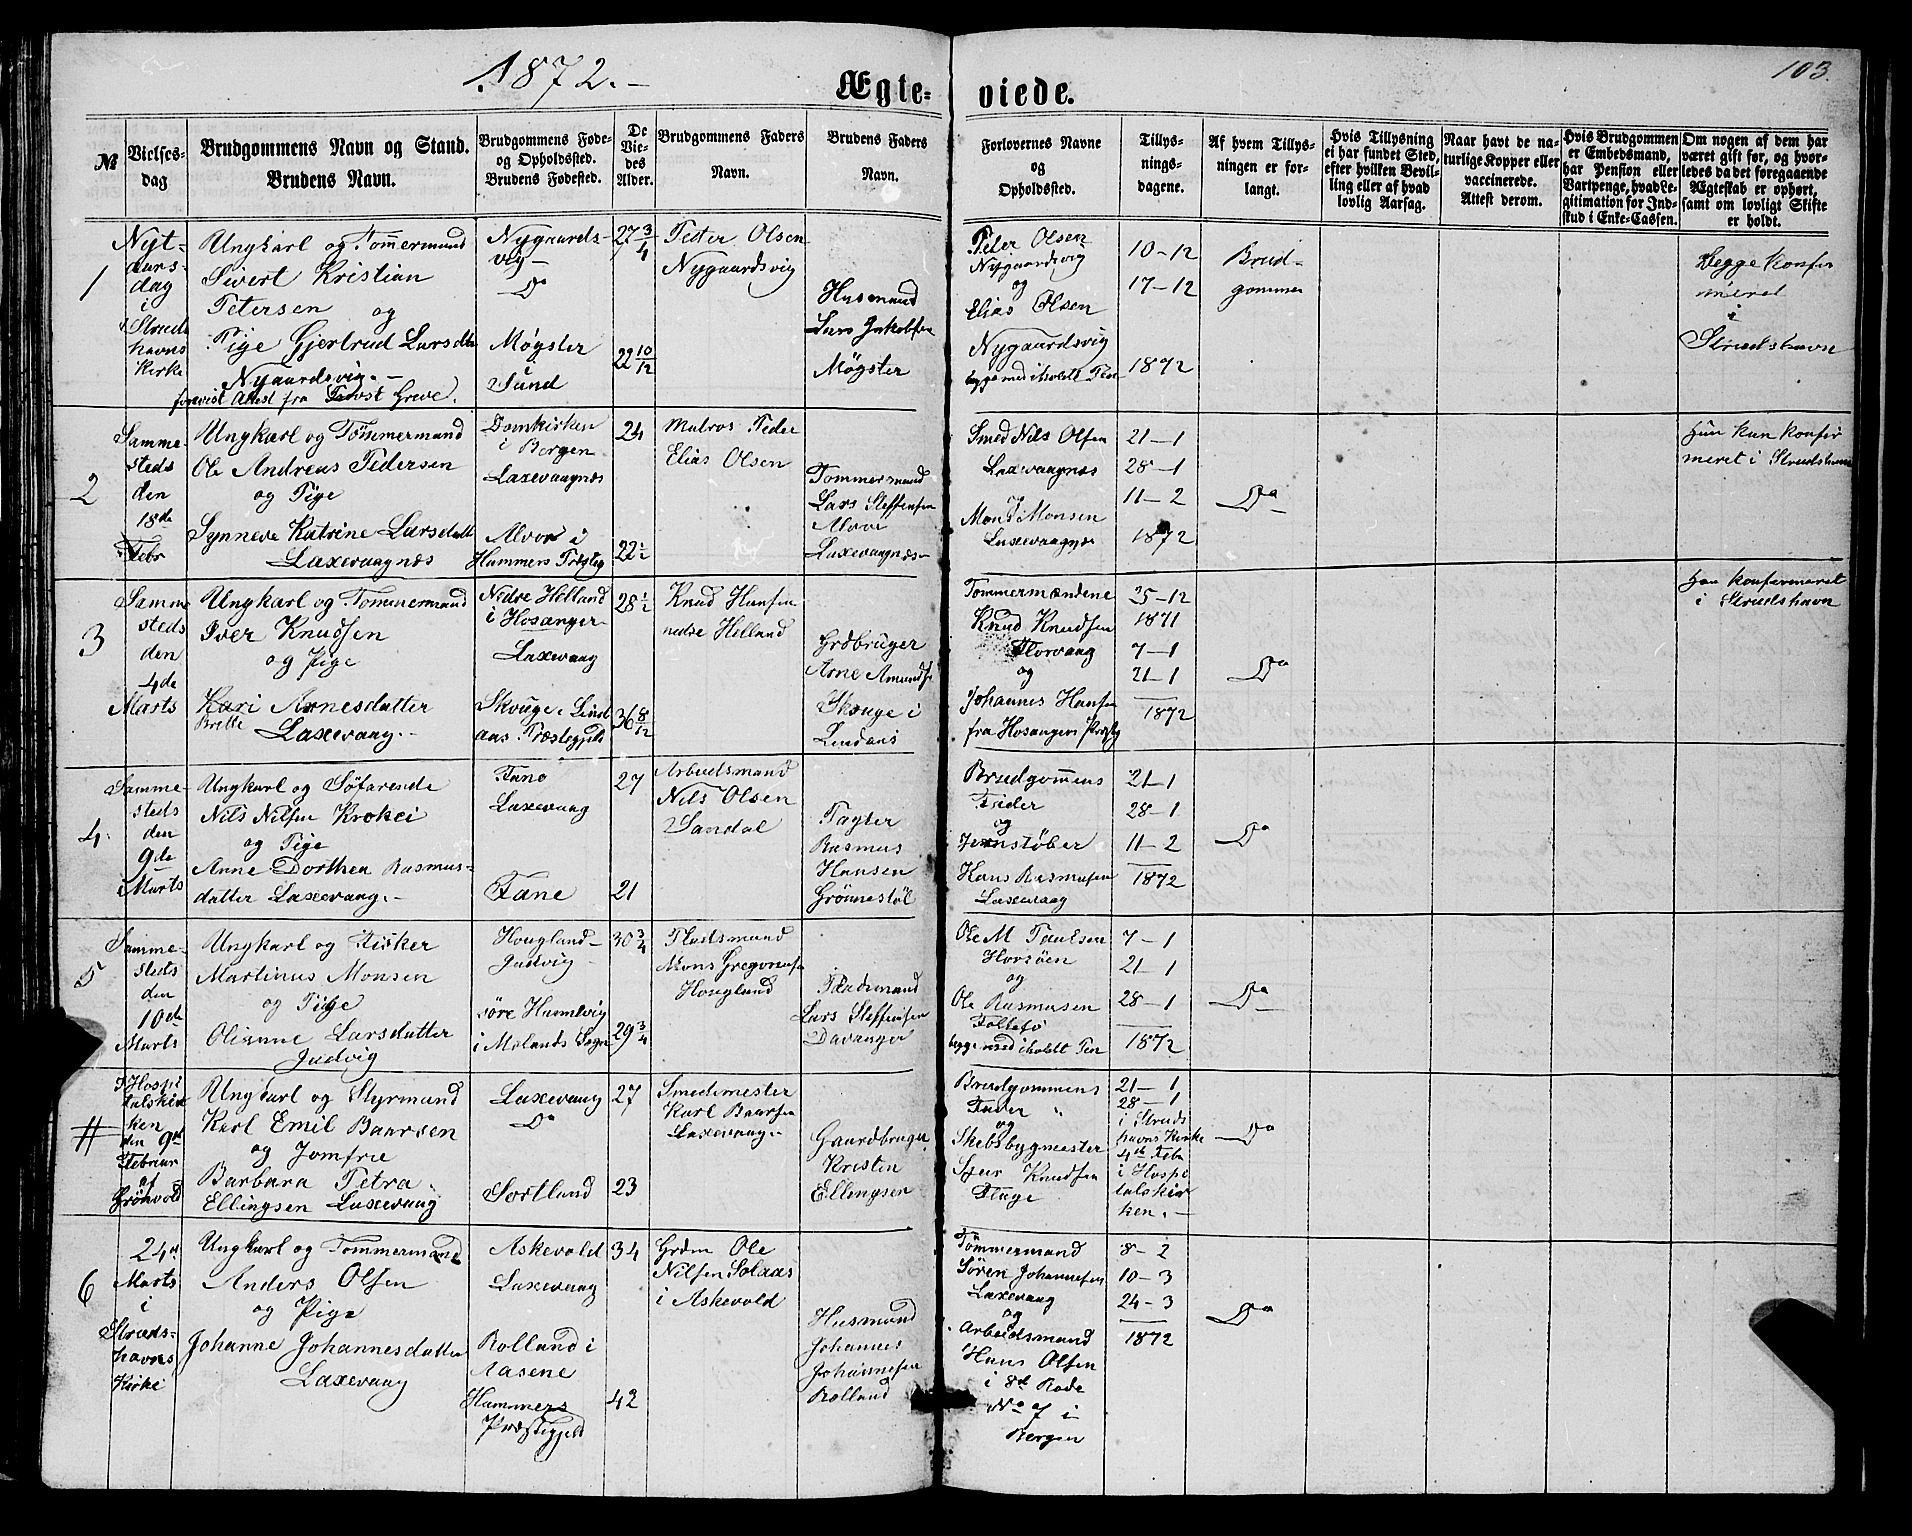 1872.-
103.
Ægte=
viede.
№
Vielses-
dag
Brudgommens Navn og Stand.
Brudens Navn.
Brudgommens Føde-
og Opholdssted.
Brudens Fødested.
De
Vie-
des
Alder.
Brudgommens Faders
Navn.
Brudens Faders
Navn.
Forlovernes Navne
og
Opholdssted.
Tillys-
nings-
dagene.
Af hvem Tillys-
ningen er for-
langt.
Hvis Tillysning
ei har fundet Sted,
efter hvilken Bevil-
ling eller af hvad
lovlig Aarsag.
Naar havt de na-
turlige Kopper eller
vaccinerede.
Attest derom.
Hvis Brudgommen
er Embedsmand,
har Pension eller
Vartpenge, hvad Le-
gitimation for Ind-
skud i Enke-Cassen.
Om nogen af dem har
været gift før, og hvor-
ledes da det foregaaende
Ægteskab er ophørt,
samt om lovligt Skifte
er holdt.
1
Nyt-
aars-
dag
i
Struds
havns
kirke
Ungkarl og Tømmermand
Sivert Kristian
Petersen og
Pige Gjertrud Larsdtr
Nygaardsvig.-
forevist Attest fra Provst Greve.
Nygaards-
vig-
Do
Møgster
Sund
27 3/4
22 10/12
Petter Olsen
Nygaardsvig
Husmand
Lars Jakobsen
Møgster
Peter Olsen
Nygaardsvig
og
Elias Olsen
Nygaardsvig
begge med iholdt Pen
10-12
17-12
1872
Brud-
gommen
Begge konfir
meret
i
Strudshavn
2
Samme
steds
den
18de
Febr
Ungkarl og Tømmermand
Ole Andreas Pedersen
og Pige
Synneve Katrine Larsdatt
Laxevaagnæs
Domkirken
i Bergen
Laxevaagnæs
Alvøe i
Hammers Præsteg
24
22 1/2
Matros Peder
Elias Olsen
Tømmermand
Lars Steffensen
Alvøe
Laxevaagnæs-
Smed Nils Olsen
Laxevaagnæs
Mons Monsen
Laxevaagnæs
21-1
28-1
11-2
1872
Do
Hun kun konfir
meret i Strudshavn
3
Samme
steds
den
4de
Marts
Ungkarl og Tømmermand
Iver Knudsen
og Pige
Kari Arnesdatter
Britte
Laxevaag.-
Nedre Helland
i Hosanger
Laxevaag
Skouge i Lind
aas Præstegjeld
28 1/2
36 8/12
Knud Hansen
nedre Helland
Grdbruger
Arne Amunds
Skouge i
Lindaas
Tømmermændene
Knud Knudsen
Florvaag
og
Johannes Hansen
fra Hosangers Præsteg
25-12
1871
7-1
21-1
1872
Do
Han konfirmeret
i Strudshavn
4.
Samme-
steds
den
9de
Marts
Ungkarl og Søfarende
Nils Nilsen Krokei
og Pige
Anne Dorthea Rasmus-
datter Laxevaag.-
Fane
Laxevaag
Fane
27
21
Arbeidsmand
Nils Olsen
Sandal
Pagter
Rasmus
Hansen
Grønnestøl
Brudgommens
Fader
og
Jernstøber
Hans Rasmusen
Laxevaag
21-1
28-1
11-2
1872
Do
5
Samme-
steds
den
10de
Marts
Ungkarl og Fisker
Martinus Monsen
og Pige
Olianne Larsdatter
Judvig
Hougland-
Judvig-
søre
i Mølands Sogn
30 3/4
29 3/4
Pladsmand
Mons Gregoriusen
Hougland
Pladsmand
Lars Steffensen
Davanger
Ole M Paulsen
Horsøen
og
Ole Rasmusen
Follesø
begge med iholdt Pen
7-1
21-1
28-1
1872
Do
#
I Hospi
talskir
ken
den 9de
Februar
af
Grønvold
Ungkarl og Styrmand
Karl Emil Baarsen
og Jomfrue
Barbara Petra
Ellingsen Laxevaag
Laxevaag
Do
Sortland
27
23
Smedmester
Karl Baarsen
Laxevaag.-
Gaardbruger
Kristen
Ellingsen
Brudgommens
Fader
og
Skibsbygmester
Knudsen
21-1
28-1
i Struds
havns Kirke
4de Feb
i Hospi
talskir
ken.-
Do
6
24de
Marts
i
Struds-
havns
Kirke
Ungkarl og Tømmermand
Anders Olsen
og Pige
Johanne Johannesdatter
Laxevaag
Askevold
Laxevaag
Rolland i
Aasene
Hammers
Præstegjeld
34
42
Grdm Ole
Nilsen Solaas
i Askevold
Husmand
Johannes
Johannesen
Rolland
Tømmermand
Søren Johannesen
Laxevaag
og
Arbeidsmand
Hans Olsen
i 8de Rode
No 7 i
Bergen
8-2
10-3
24-3
1872
Do